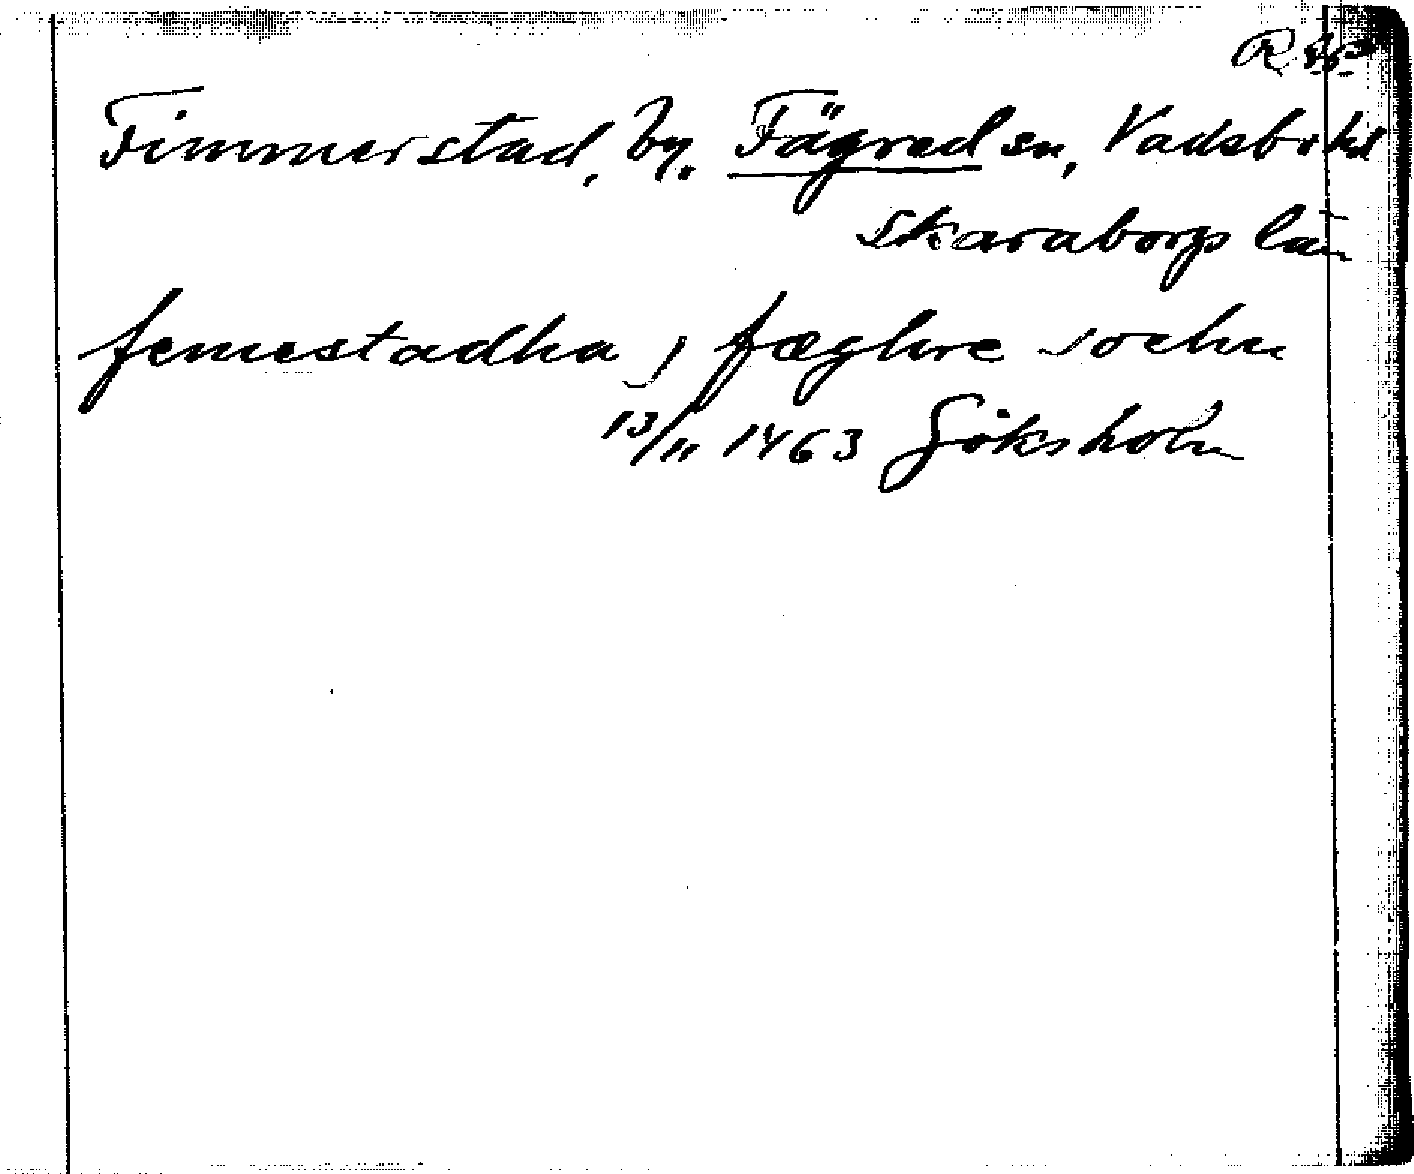 Fimmerstad, by. Fägred sn, Vadsbo hd
Skaraborgs län
femestadha j fæghre sochn
13/11 1463 Göksholm